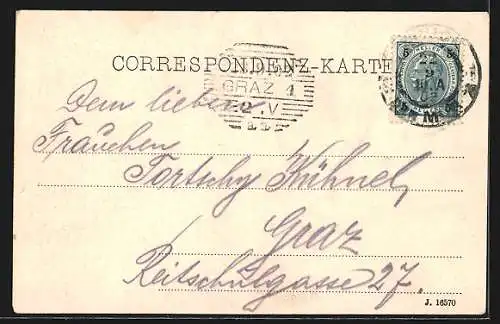 CORRESPONDENZ-KARTE
GRAZ 1
Dem lieben
Frauchen
Kühnel,
Graz
Reitschulgasse 27.
J. 16570